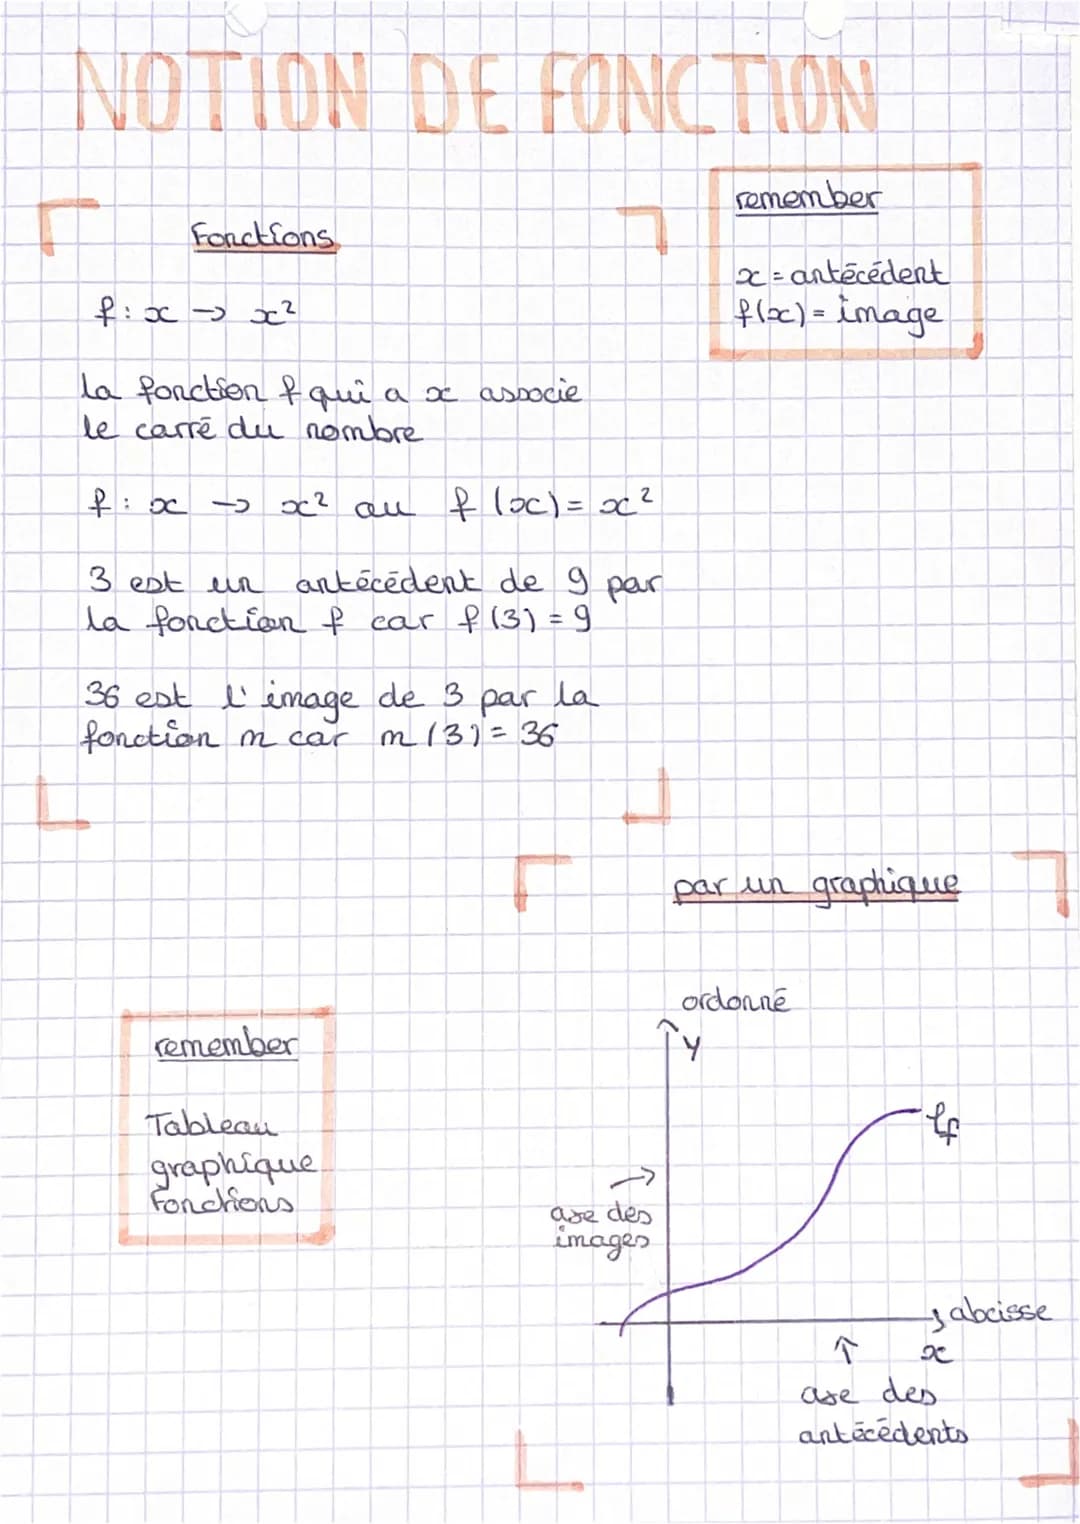 NOTION DE FONCTION
remember
x = antécédent
f(x) = image
Fonctions
f : x → x²
la fonction f qui a x associe
le carré du nombre
f : x → x² ou f (x) = x²
3 est un antécédent de 9 par
la fonction f car f (3) = 9
36 est l'image de 3 par la
fonction m car m (3) = 36
par un graphique
ordonné
y
Cf
axe des
images
abcisse
x
axe des
antécédents
remember
Tableau
graphique
Fonctions